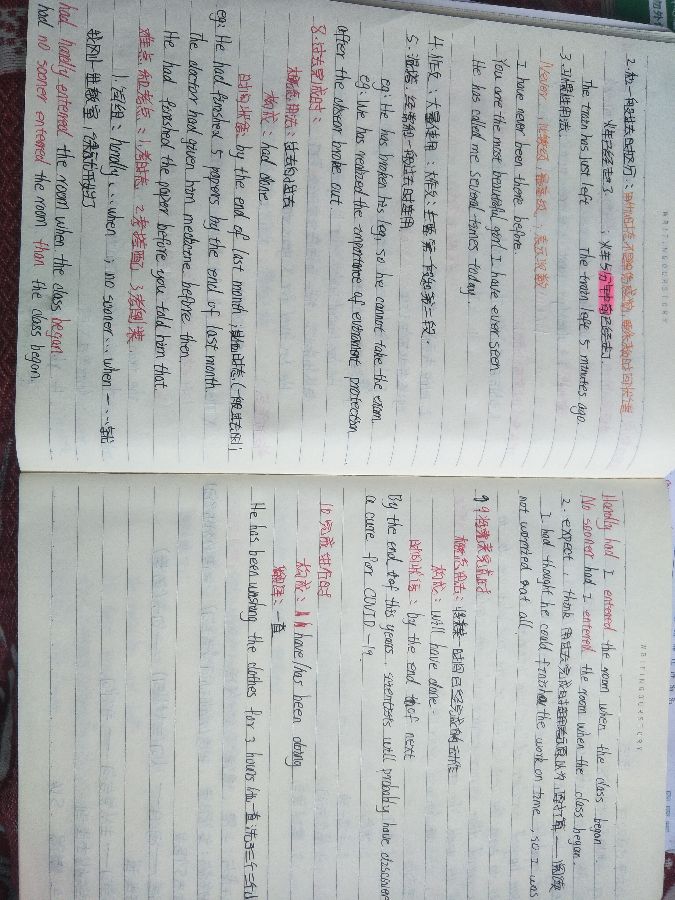 WRITINGOURSTORY
2. 与一般过去时的区别：
火车已经走了 ； 火车5分钟前已经走了.
The train has just left The train left 5 minutes ago.
3. 习惯性用法.
Never ，最高级，
I have never been there before.
You are the most beautiful girl I have ever seen.
He has called me several times today.
4. 作文：大量使用：大作文：主题第一段和第三段.
5. 混搭：经常和一般过去时连用
eg: He has broken his leg, so he cannot take the exam
eg: We has realized the importance of envirnment protection
after the disear broke out.
8. 过去完成时：
概念用法：过去的过去
构成：had done.
时间状语 by the end of last month ; 其他时态 (一般过去时);
eg: He had finished 5 papers by the end of last month.
The doctor had given him medicine before then.
He had finished the paper before you told him that
难点和考点：1.考时态 2.考搭配 3.考倒装
1. 词组：Hardly ... when ; no sooner ... when 一 ... 就
我刚一进教室，课就开始了
had hardly enterred the room when the class began.
had no sooner enterred the room than the class began.
WRITINGOURSTORY
Hardly had I enterred the room when the class began
No sooner had I enterred the room when the class began.
2. expect , think 用过去完成时
I had thought he could finish the work on time , so I was
not worried at all.
9. 将来完成时
概念用法：将来某一时间已经完成的动作
构成：will have done.
时间状语：by the end of next
By the end of this years , scientists will probably have discover
a cure for COVID-19.
10 完成进行时
构成：have/has been doing
翻译：一直
He has been washing the clothes for 3 hours 他一直洗了三个小